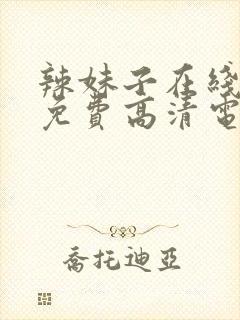 辣妹子在綫
免費高清電
喬托迪亞